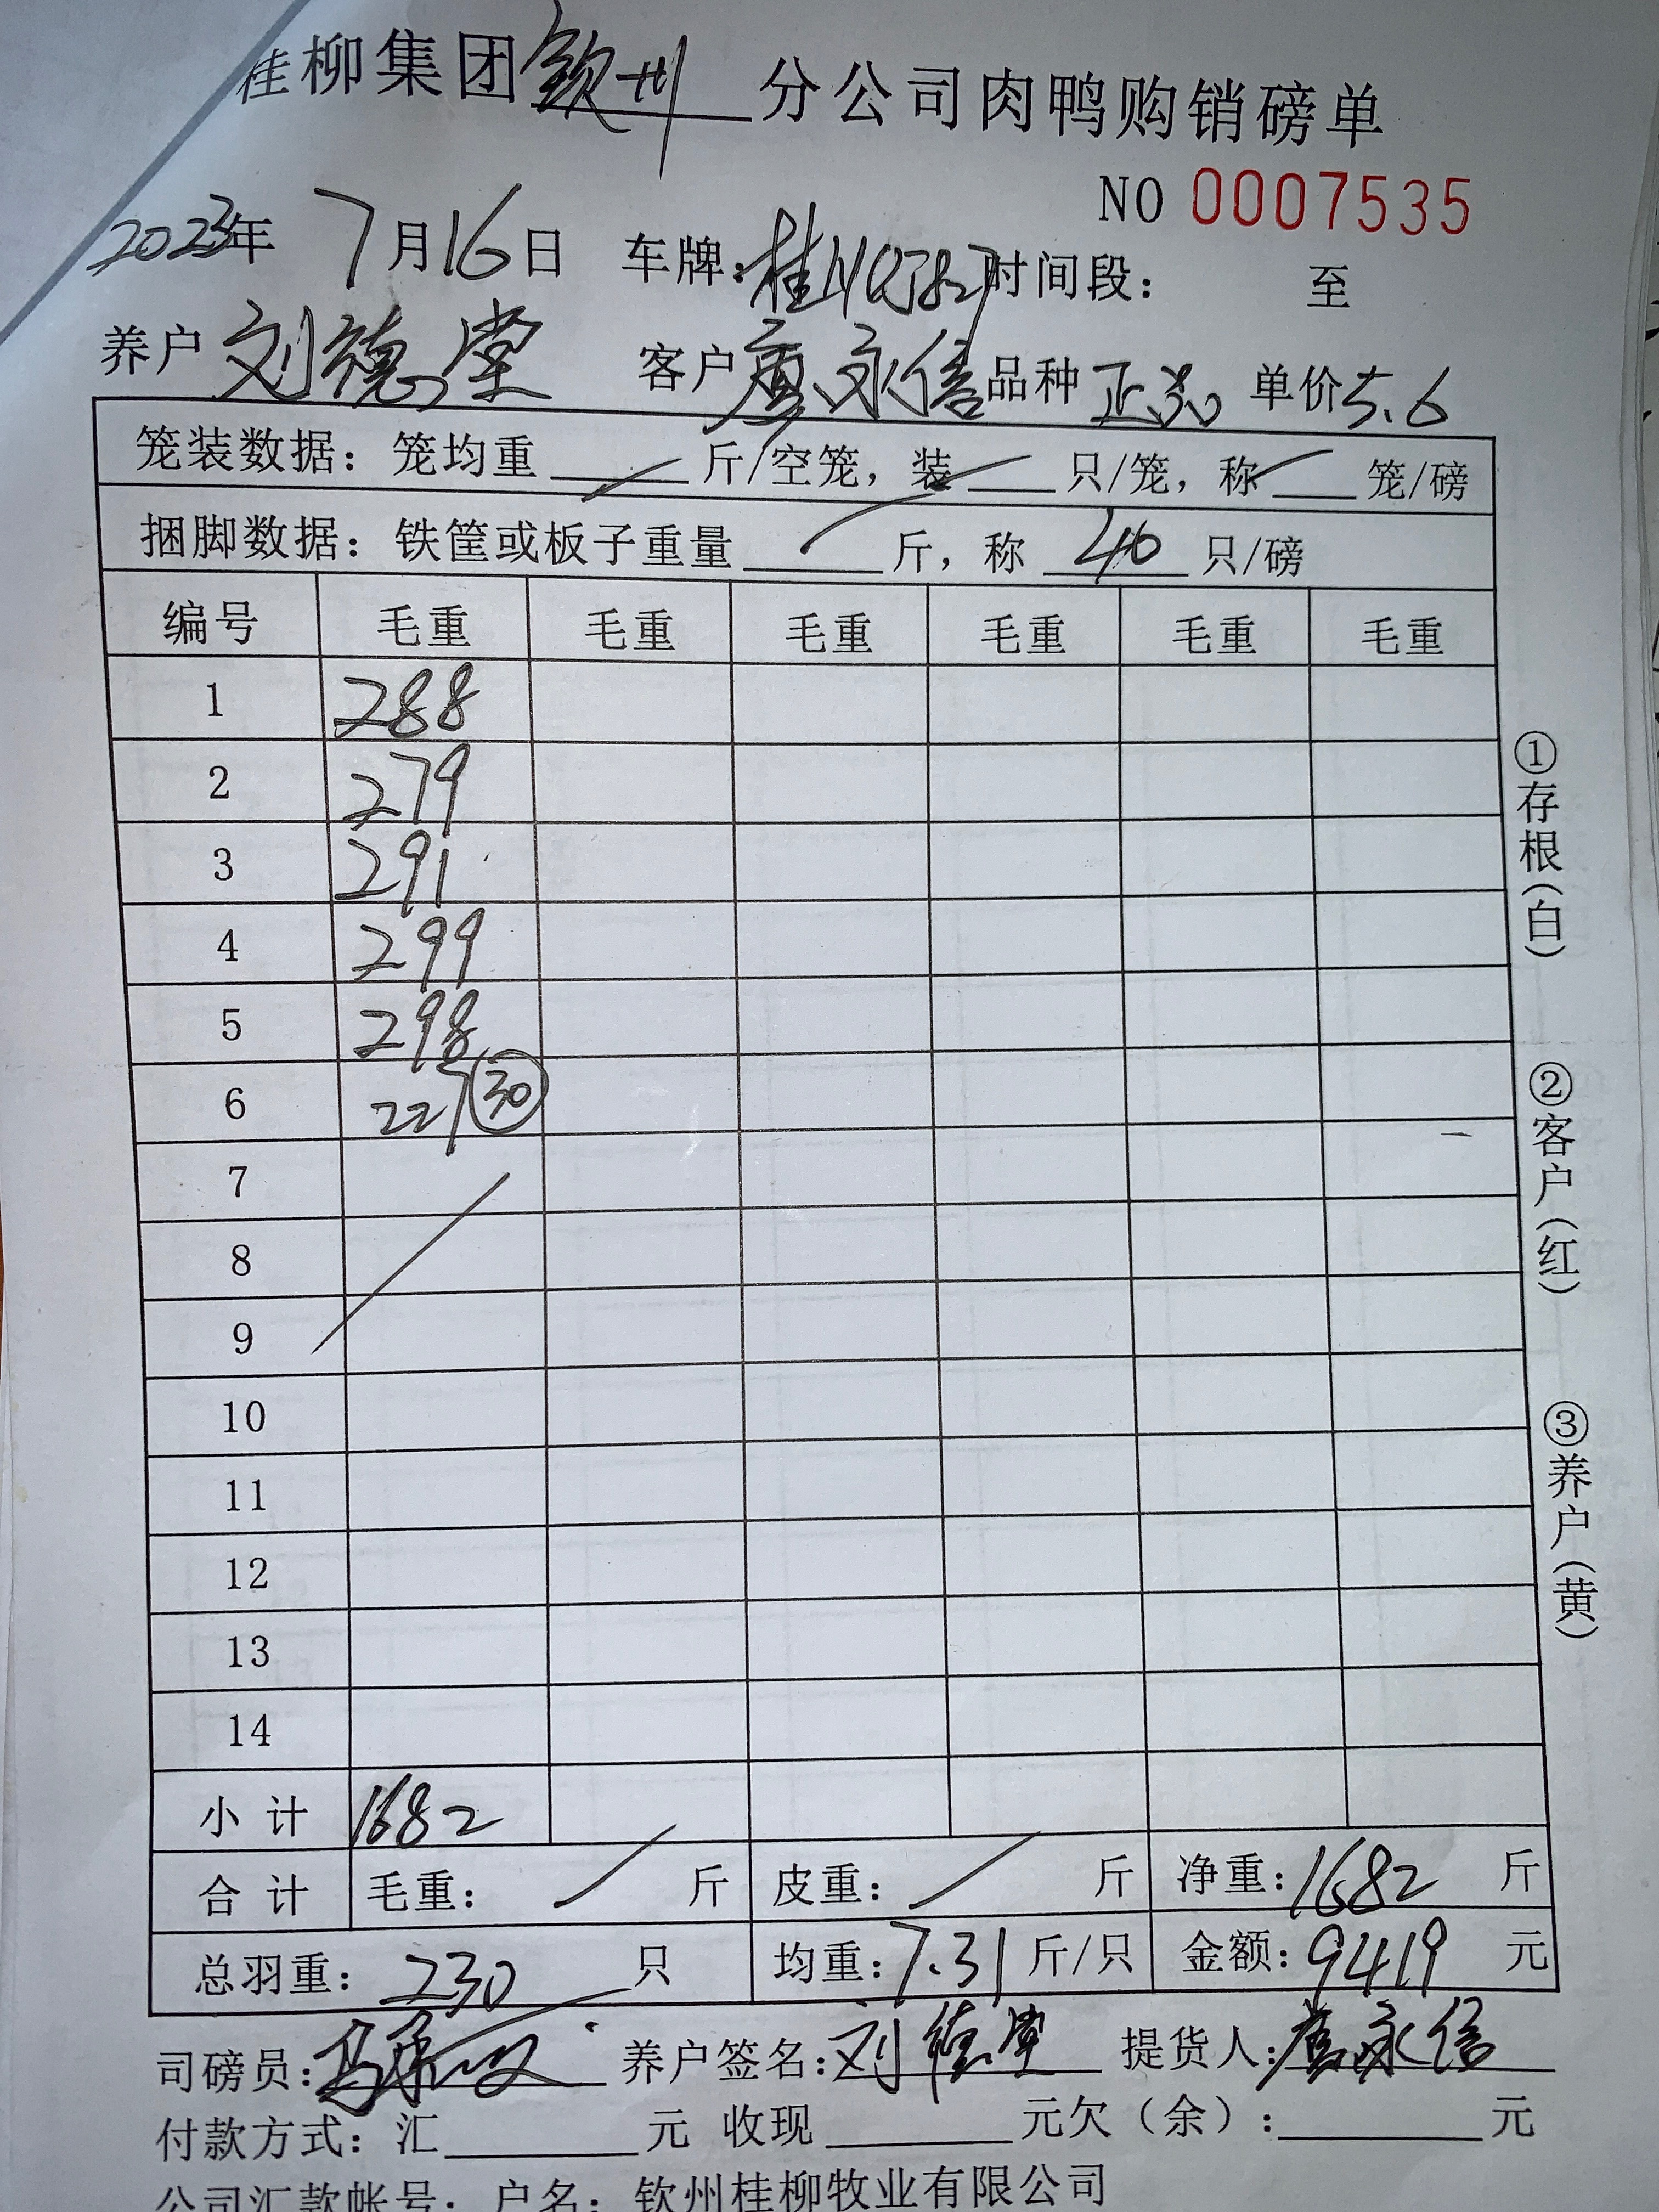 桂柳集团钦州分公司肉鸭购销磅单
NO 0007535
2023年 7月16日 车牌：桂 时间段： 至
养户 刘德堂 客户 永信 品种 正 单价5.6
笼装数据：笼均重 斤/空笼，装 只/笼，称 笼/磅
捆脚数据：铁筐或板子重量 斤，称 40 只/磅
编号 毛重 毛重 毛重 毛重 毛重 毛重
1 288
2 279
3 291
4 299
5 298
6 227 30
7
8
9
10
11
12
13
14
小计 1682
合计 毛重： 斤 皮重： 斤 净重：1682 斤
总羽重：230 只 均重：7.31 斤/只 金额：9419 元
司磅员： 养户签名：刘德堂 提货人： 永信
付款方式：汇 元 收现 元欠（余）： 元
公司汇款帐号：户名：钦州桂柳牧业有限公司
①存根（白）
②客户（红）
③养户（黄）